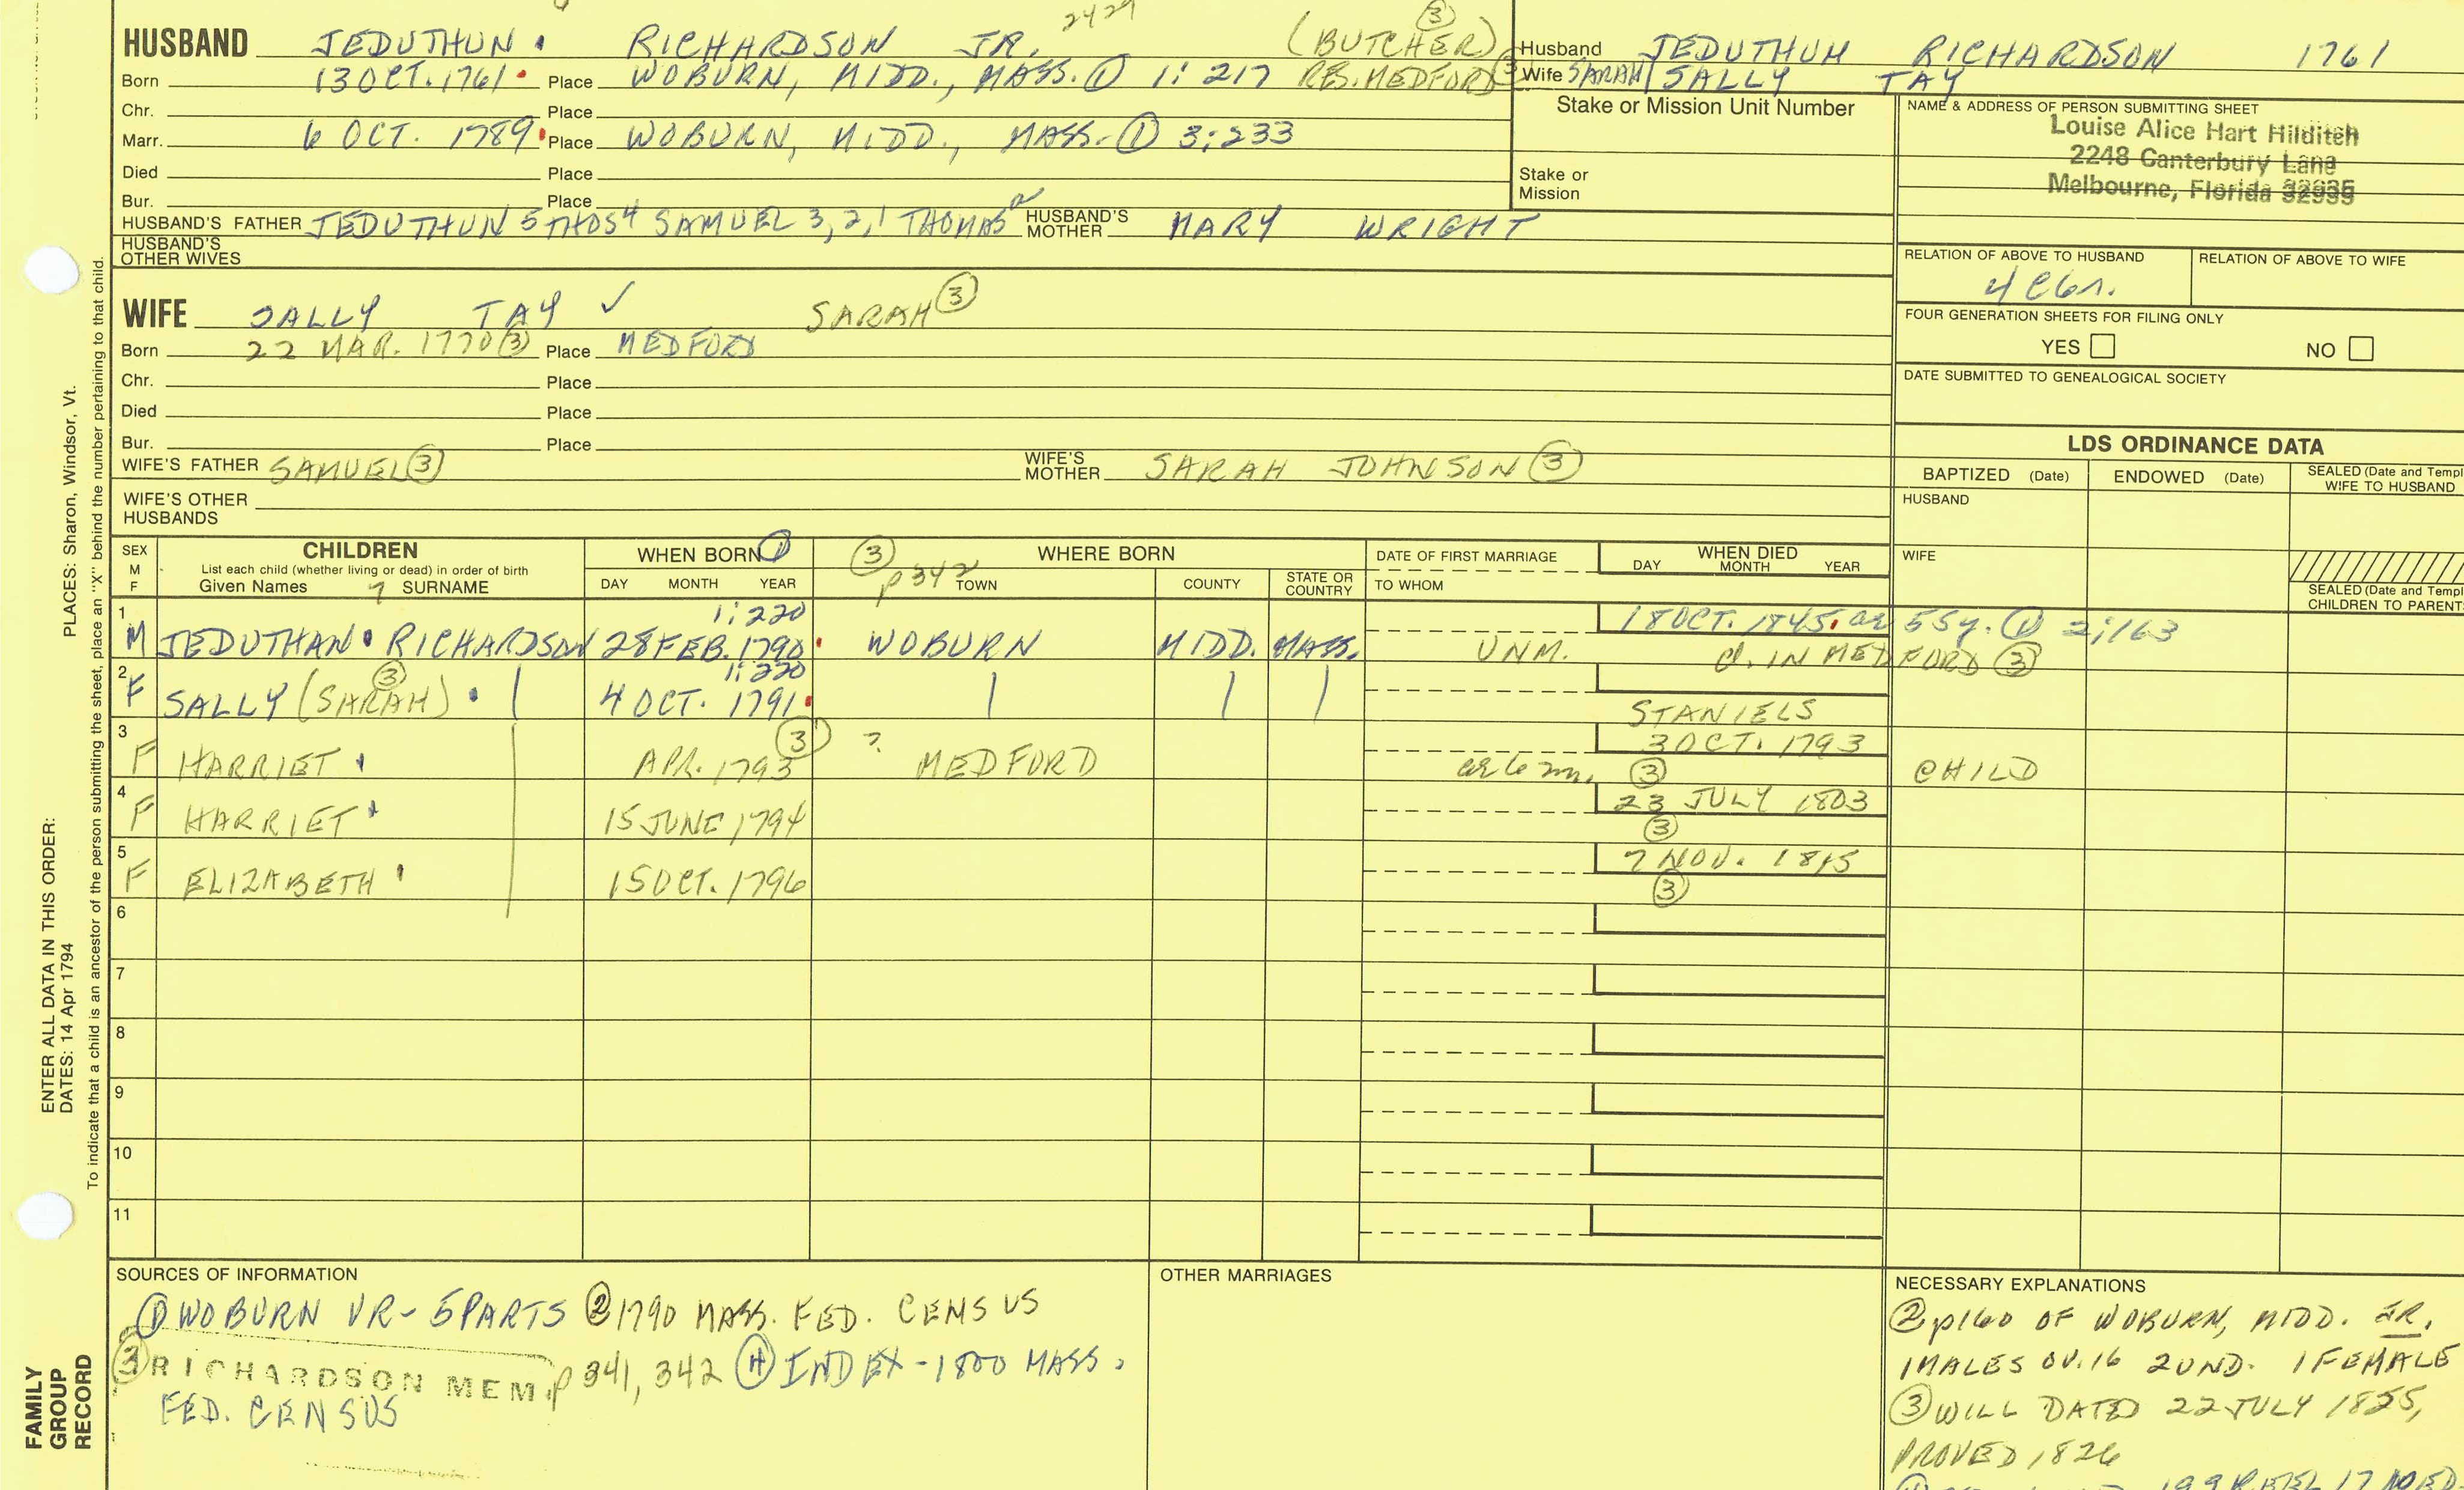 2429
HUSBAND JEDUTHUN. RICHARDSON JR. (BUTCHER) ③
Born 13 OCT. 1761. Place WOBURN, MIDD., MASS. ① 1:217 RES. MEDFORD ③
Chr. Place
Marr. 6 OCT. 1789. Place WOBURN, MIDD., MASS. ① 3:233
Died Place
Bur. Place
HUSBAND'S FATHER JEDUTHUN 5 THOS 4 SAMUEL 3,2,1 THOMAS HUSBAND'S MOTHER MARY WRIGHT
HUSBAND'S OTHER WIVES
Husband JEDUTHUN RICHARDSON 1761
Wife SARAH/SALLY TAY
Stake or Mission Unit Number
Stake or Mission
NAME & ADDRESS OF PERSON SUBMITTING SHEET
Louise Alice Hart Hilditch
2248 Canterbury Lane
Melbourne, Florida 32935
RELATION OF ABOVE TO HUSBAND RELATION OF ABOVE TO WIFE
FOUR GENERATION SHEETS FOR FILING ONLY
YES NO
DATE SUBMITTED TO GENEALOGICAL SOCIETY
WIFE SALLY TAY ✓ SARAH ③
Born 22 MAR. 1770 ③ Place MEDFORD
Chr. Place
Died Place
Bur. Place
WIFE'S FATHER SAMUEL ③ WIFE'S MOTHER SARAH JOHNSON ③
WIFE'S OTHER HUSBANDS
LDS ORDINANCE DATA
BAPTIZED (Date) ENDOWED (Date) SEALED (Date and Templ
WIFE TO HUSBAND
HUSBAND
WIFE
SEALED (Date and Templ
CHILDREN TO PARENT
SEX M F
CHILDREN
List each child (whether living or dead) in order of birth
Given Names SURNAME
WHEN BORN ①
DAY MONTH YEAR
③ p 342 WHERE BORN
TOWN COUNTY STATE OR COUNTRY
DATE OF FIRST MARRIAGE
TO WHOM
WHEN DIED
DAY MONTH YEAR
1 1:220 18 OCT. 1845. ae 55y. ① 2:163
M JEDUTHAN. RICHARDSON 28 FEB. 1790. WOBURN MIDD. MASS. UNM. d. IN MEDFORD ③
2 ③ 1:220
F SALLY (SARAH). 4 OCT. 1791.
STANIELS
3 ③ 3 OCT. 1793
F HARRIET APR. 1793 ? MEDFORD ae 6 m. ③ CHILD
4 23 JULY 1803
F HARRIET 15 JUNE 1794 ③
5 7 NOV. 1815
F ELIZABETH 15 OCT. 1796 ③
6
7
8
9
10
11
SOURCES OF INFORMATION
① WOBURN VR - 5 PARTS ② 1790 MASS. FED. CENSUS
③ RICHARDSON MEM. p 341, 342 ④ INDEX - 1800 MASS.
FED. CENSUS
OTHER MARRIAGES
NECESSARY EXPLANATIONS
② p160 OF WOBURN, MIDD. JR.
1 MALES OV. 16 2 UND. 1 FEMALE
③ WILL DATED 22 JULY 1825,
PROVED 1826
PLACES: Sharon, Windsor, Vt.
ENTER ALL DATA IN THIS ORDER:
DATES: 14 Apr 1794
To indicate that a child is an ancestor of the person submitting the sheet, place an "X" behind the number pertaining to that child.
FAMILY
GROUP
RECORD